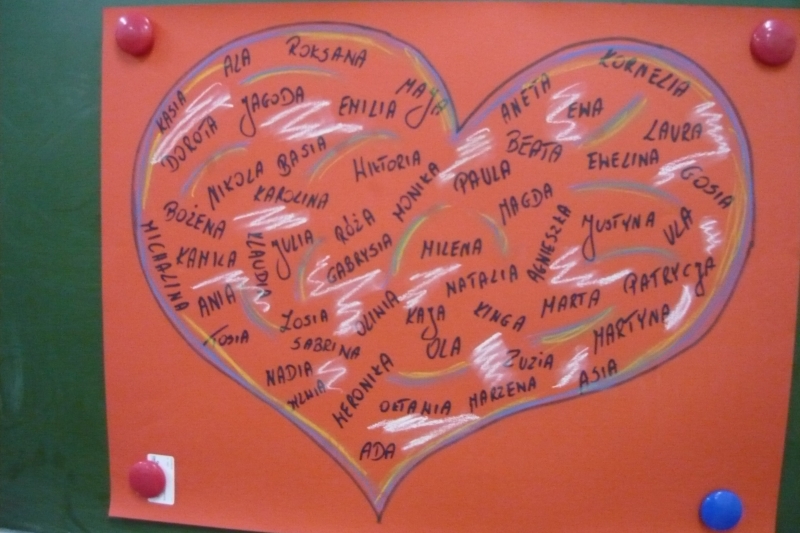 ROKSANA
ALA
KORNELIA
KASIA
JAGODA
EMILIA
MAJA
ANETA
EWA
DOROTA
LAURA
BASIA
WIKTORIA
BEATA
EWELINA
NIKOLA
PAULA
GOSIA
KAROLINA
MONIKA
MAGDA
BOŻENA
RÓŻA
JUSTYNA
ULA
MICHALINA
KAMILA
KLAUDIA
JULIA
GABRYSIA
MILENA
AGNIESZKA
PATRYCJA
ANIA
NATALIA
ZOSIA
OLIWIA
KAJA
KINGA
MARTA
MARTYNA
TOSIA
SABRINA
OLA
ZUZIA
NADIA
WERONIKA
MARZENA
ASIA
OKTAWIA
ADA